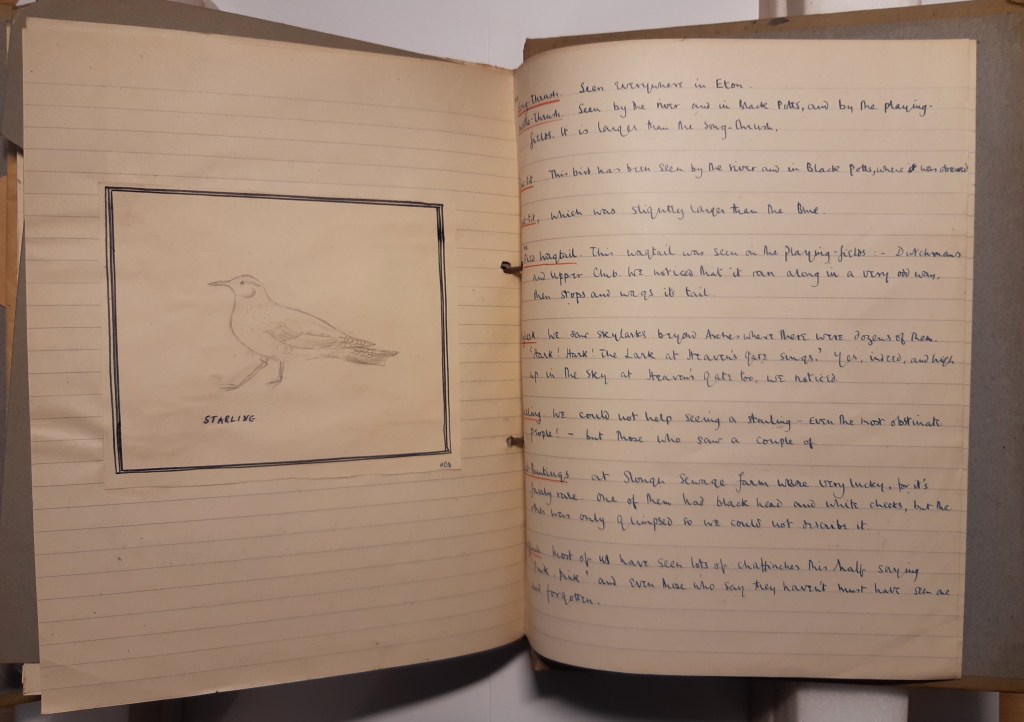 STARLING
Thrush. Seen Everywhere in Eton.
Thrush. Seen by the river and in Black Potts, and by the playing-
fields. It is larger than the Song-Thrush.
This bird has been seen by the river and in Black Potts, where it was observed
which was slightly larger than the Blue.
Pied wagtail. This wagtail was seen on the playing-fields :- Dutchmans
and Upper Club. We noticed that it ran along in a very odd way.
Then stops and wags its tail.
We saw skylarks beyond Arches where there were dozens of them.
'Hark! Hark! The Lark at Heaven's gate sings.' Yes, indeed, and high
up in the sky at Heaven's Gate too, we noticed.
We could not help seeing a starling - even the most obstinate
people! - but those who saw a couple of
Buntings at Slough Sewage farm were very lucky, for it's
fairly rare. One of them had black head and white cheeks, but the
other was only glimpsed so we could not describe it.
most of us have seen lots of chaffinches this half saying
Pink' and even those who say they haven't must have seen one
and forgotten.